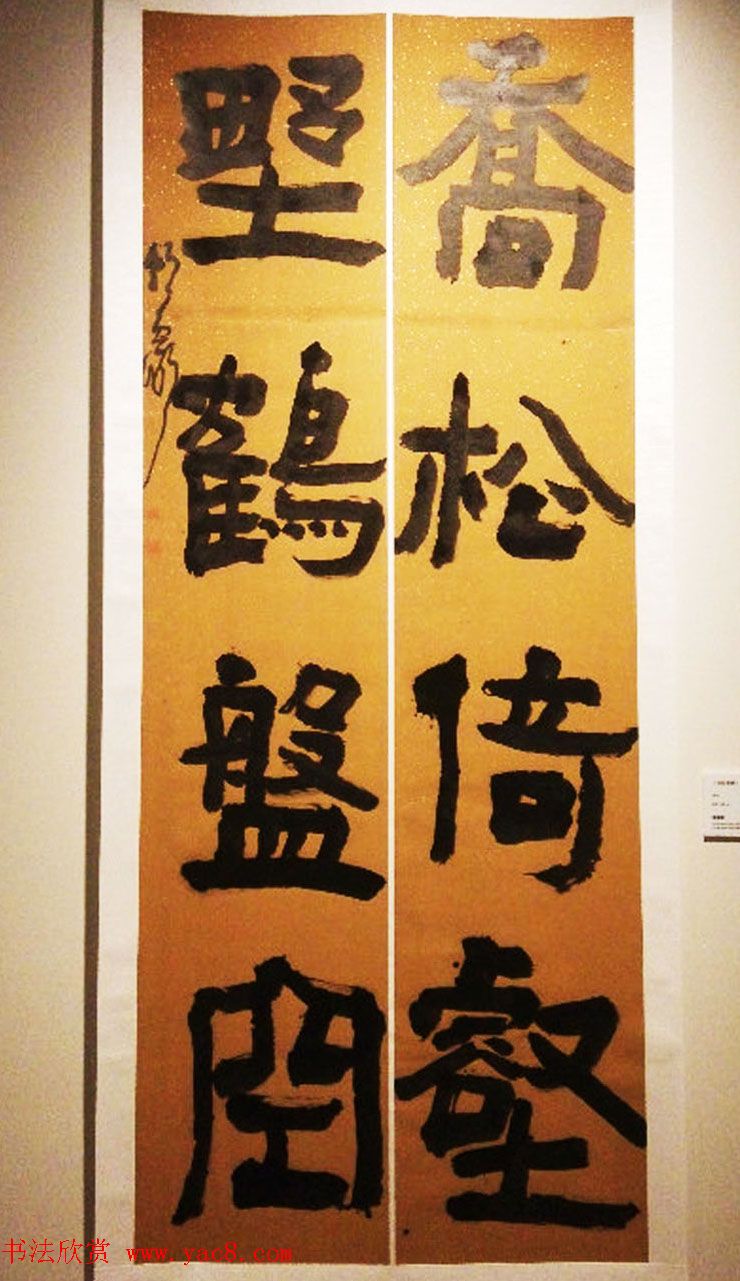 喬松倚壑
野鶴盤空
书法欣赏 www.yac8.com